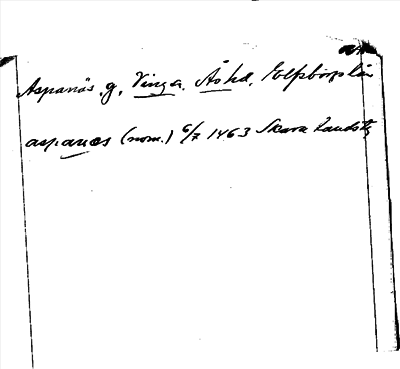 Aspanäs, g, Vinga, Ås hd, Elfsborgs län
aspanæs (nom.) 6/7 1463 Skara